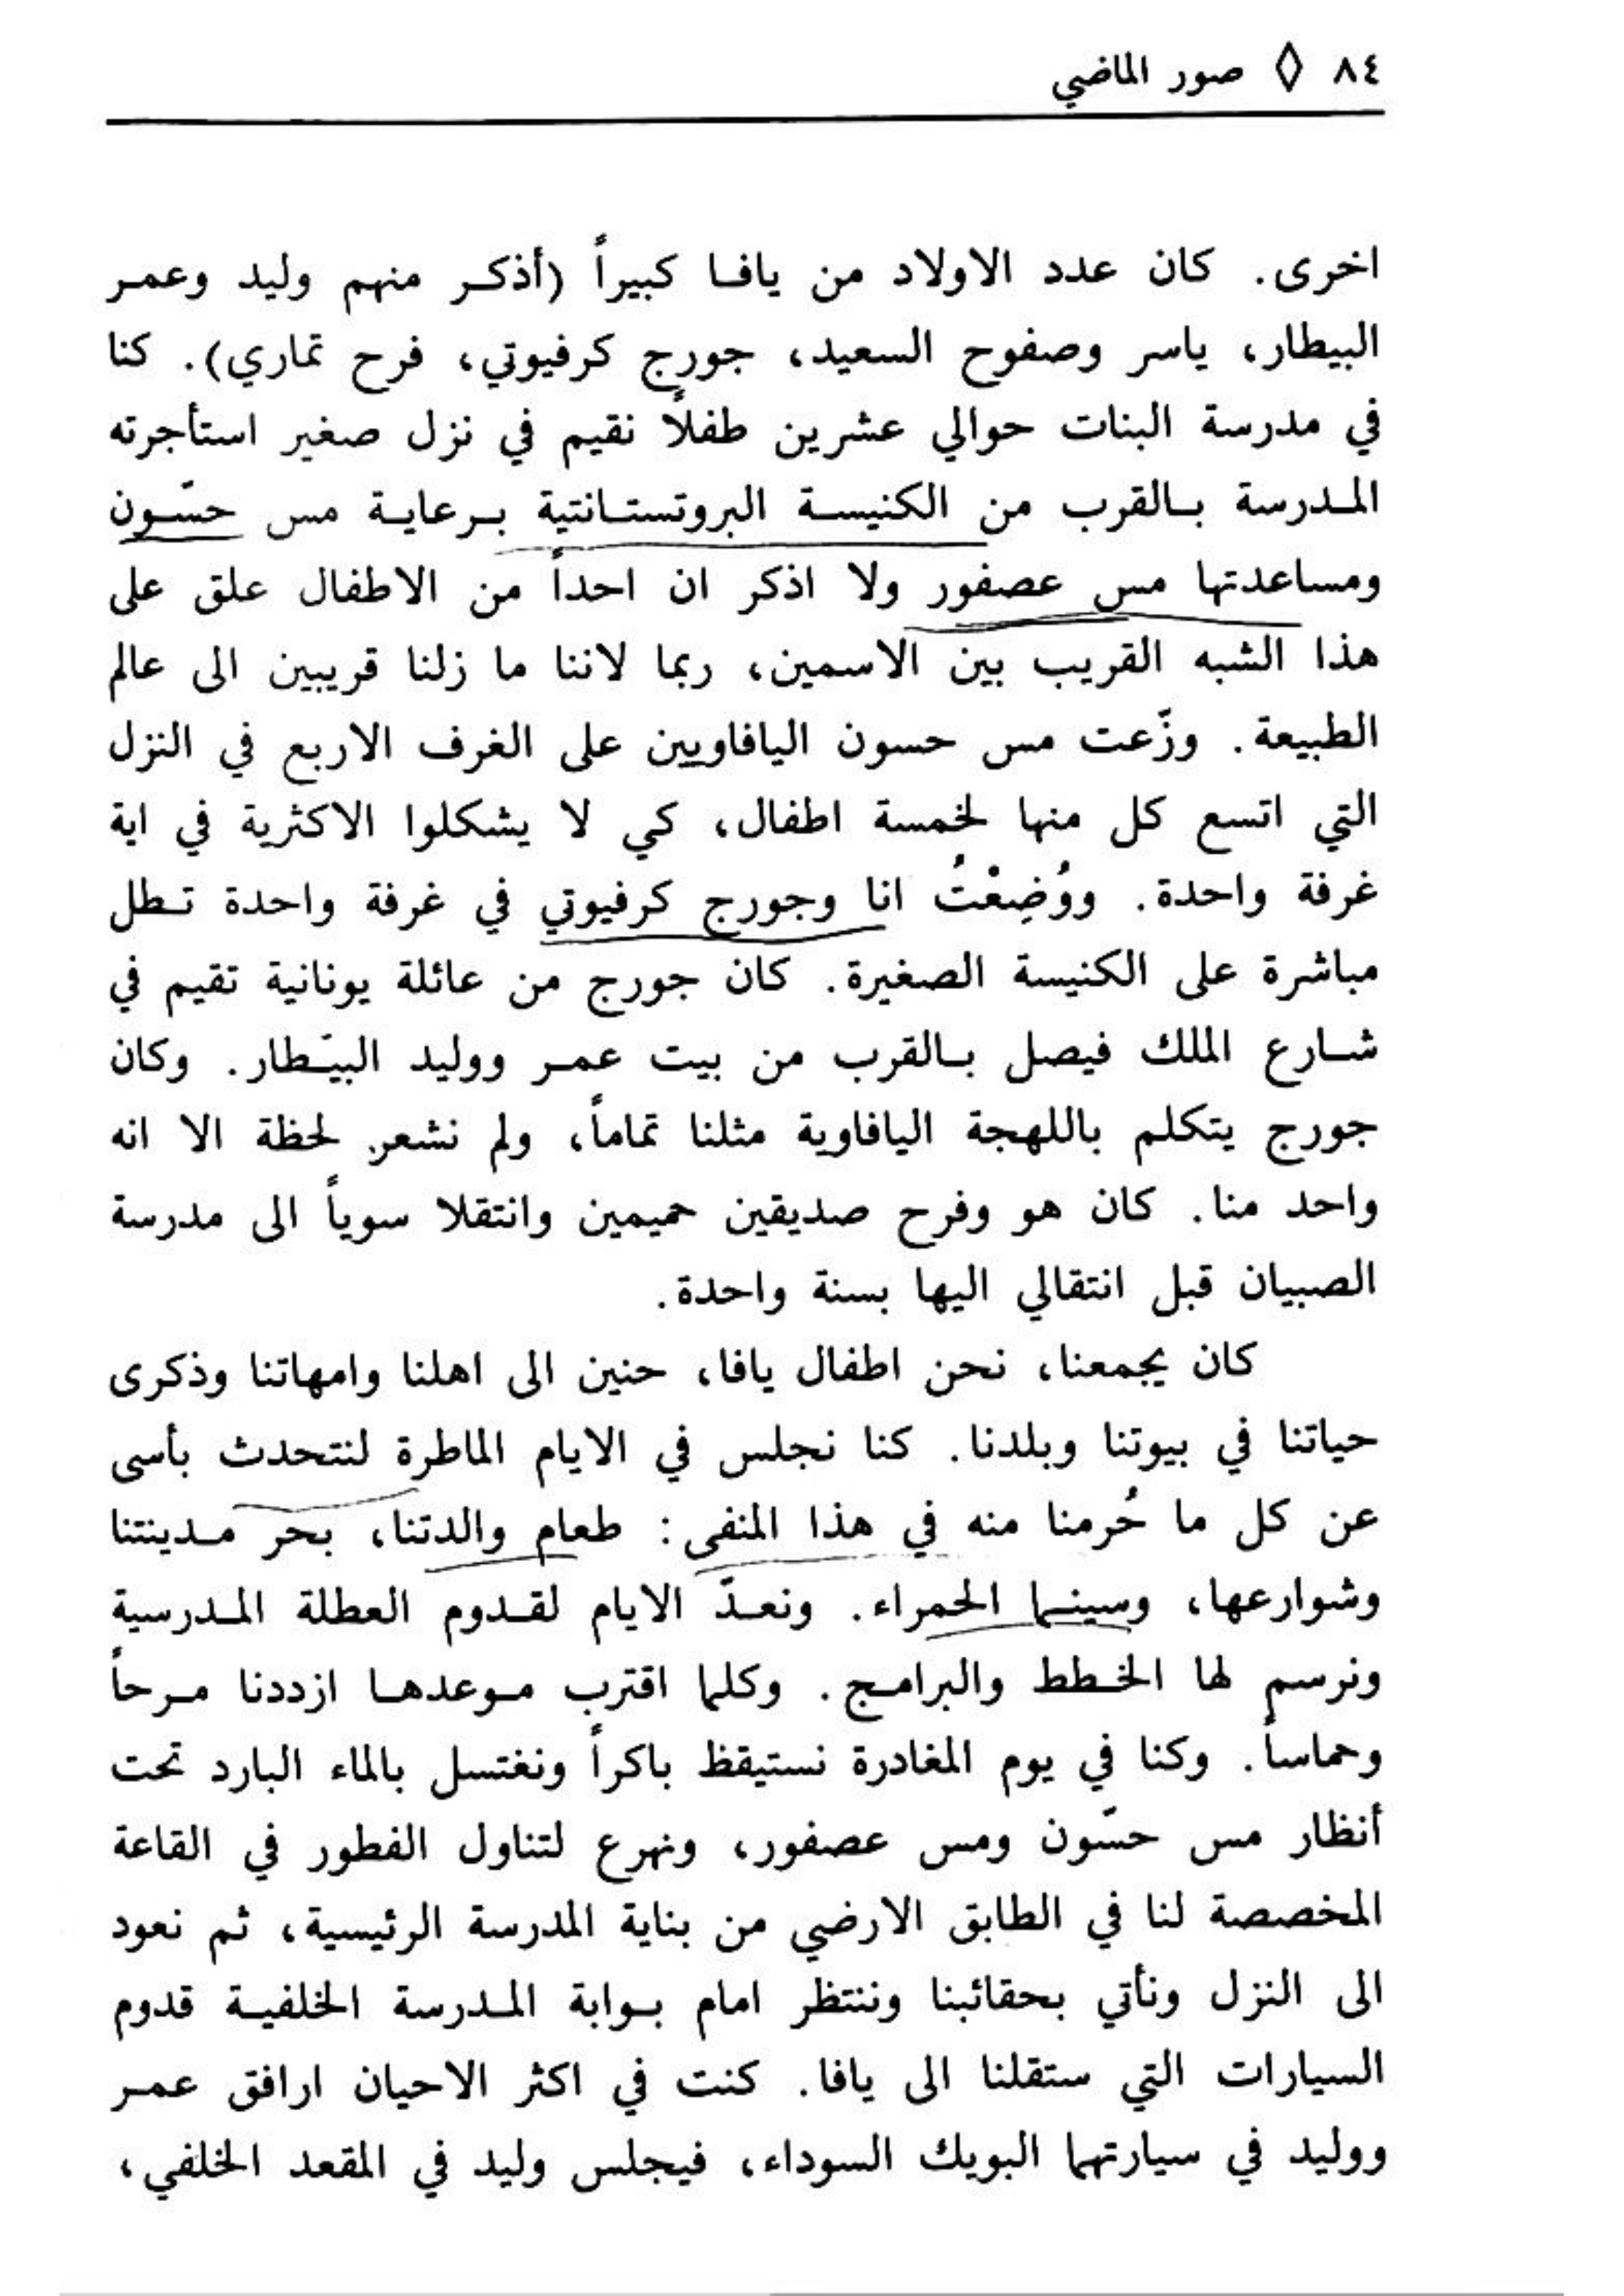 ٨٤ ◊ صور الماضي
اخرى. كان عدد الاولاد من يافا كبيراً (أذكر منهم وليد وعمر
البيطار، ياسر وصفوح السعيد، جورج كرفيوتي، فرح تماري). كنا
في مدرسة البنات حوالي عشرين طفلاً نقيم في نزل صغير استأجرته
المدرسة بالقرب من الكنيسة البروتستانتية برعاية مس حسّون
ومساعدتها مس عصفور ولا اذكر ان احداً من الاطفال علق على
هذا الشبه القريب بين الاسمين، ربما لاننا ما زلنا قريبين الى عالم
الطبيعة. وزّعت مس حسون اليافاويين على الغرف الاربع في النزل
التي اتسع كل منها لخمسة اطفال، كي لا يشكلوا الاكثرية في اية
غرفة واحدة. ووُضِعْتُ انا وجورج كرفيوتي في غرفة واحدة تطل
مباشرة على الكنيسة الصغيرة. كان جورج من عائلة يونانية تقيم في
شارع الملك فيصل بالقرب من بيت عمر ووليد البيَطار. وكان
جورج يتكلم باللهجة اليافاوية مثلنا تماماً، ولم نشعر لحظة الا انه
واحد منا. كان هو وفرح صديقين حميمين وانتقلا سوياً الى مدرسة
الصبيان قبل انتقالي اليها بسنة واحدة.
كان يجمعنا، نحن اطفال يافا، حنين الى اهلنا وامهاتنا وذكرى
حياتنا في بيوتنا وبلدنا. كنا نجلس في الايام الماطرة لنتحدث بأسى
عن كل ما حُرمنا منه في هذا المنفى: طعام والدتنا، بحر مدينتنا
وشوارعها، وسينما الحمراء. ونعدّ الايام لقدوم العطلة المدرسية
ونرسم لها الخطط والبرامج. وكلما اقترب موعدها ازددنا مرحاً
وحماساً. وكنا في يوم المغادرة نستيقظ باكراً ونغتسل بالماء البارد تحت
أنظار مس حسّون ومس عصفور، ونهرع لتناول الفطور في القاعة
المخصصة لنا في الطابق الارضي من بناية المدرسة الرئيسية، ثم نعود
الى النزل ونأتي بحقائبنا وننتظر امام بوابة المدرسة الخلفية قدوم
السيارات التي ستقلنا الى يافا. كنت في اكثر الاحيان ارافق عمر
ووليد في سيارتهما البويك السوداء، فيجلس وليد في المقعد الخلفي،